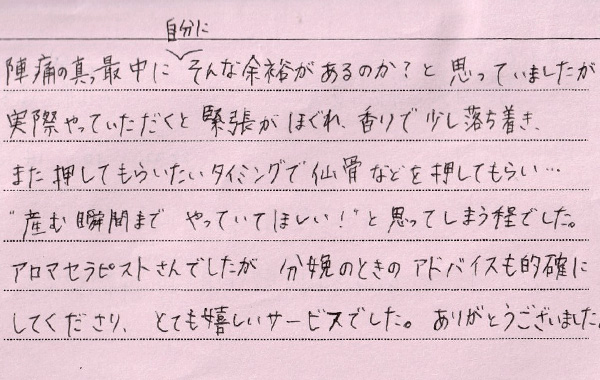 自分に
陣痛の真っ最中に そんな余裕があるのか?と 思っていましたが
実際やっていただくと 緊張が ほぐれ、香りで少し落ち着き、
また押してもらいたいタイミングで仙骨などを押してもらい…
"産む瞬間まで やっていてほしい!"と思ってしまう程でした。
アロマセラピストさんでしたが 分娩のときの アドバイスも的確に
してくださり、 とても嬉しいサービスでした。 ありがとうございました。